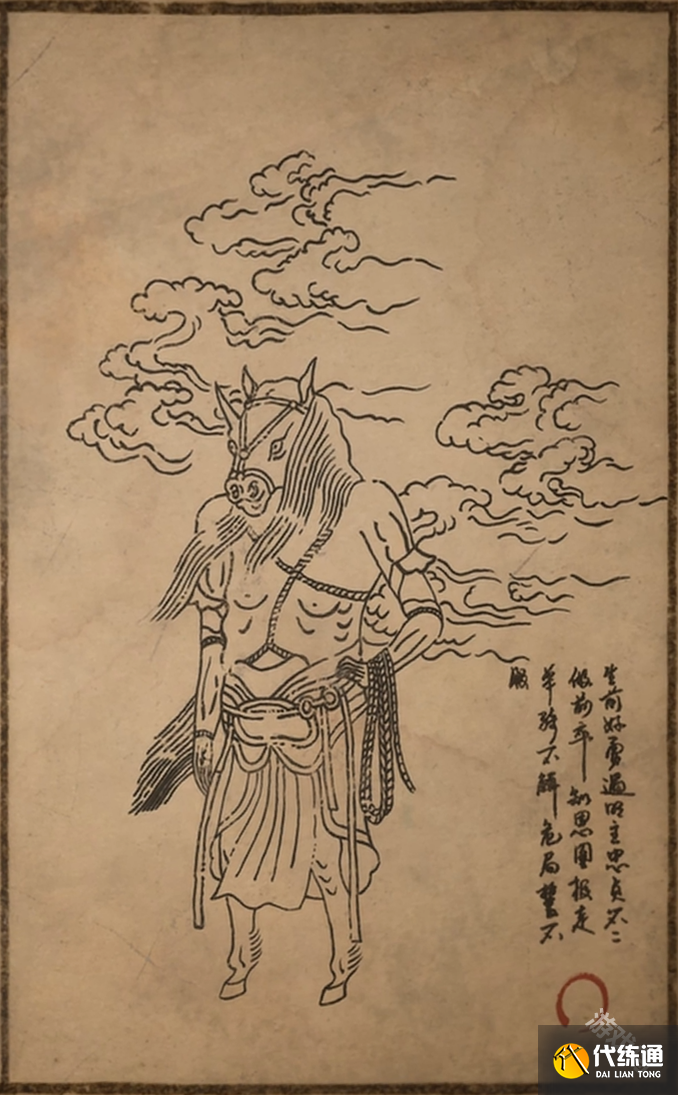 生前好勇遇明主忠贞不二
做前卒一知恩图报走
单骑不解危局誓不
服
代练通
DAI LIAN TONG